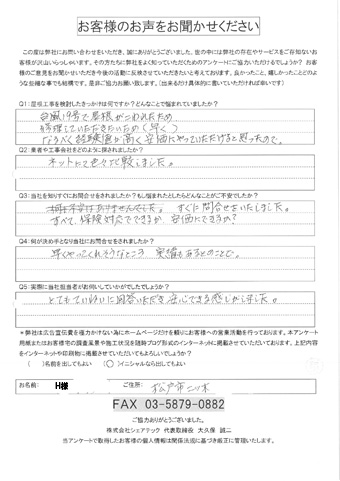 お客様のお声をお聞かせください
この度は弊社にお問い合わせをいただき、誠にありがとうございました。世の中には弊社の存在やサービスをご存知ないお
客様が沢山いらっしゃいます。その方たちに弊社をよく知っていただくためのアンケートにご協力いただけるでしょうか? お客
様のご意見をお聞かせいただき今後の活動に反映させていただきたいと考えております。良かったこと、嬉しかったことどのよ
うな些細な事でも結構です。是非ご協力お願い致します。(出来るだけ具体的に書いていただければ幸いです)
Q1:屋根工事を検討したきっかけは何ですか?どんなことで悩まれていましたか?
台風19号で屋根がこわれたため
修理していただきたいため(早く)
なるべく経験値が高く安価にやっていただけると思ったので。
Q2:業者や工事会社をどのように探されましたか?
ネットにて色々比較しました。
Q3:当社を知りすぐにお問合せをされましたか?もし悩まれたとしたらどんなことがご不安でしたか?
すぐに問合せをいたしました。
すべて、保険対応でできるか、安価にできるか?
Q4:何が決め手となり当社にお問合せをされましたか?
早くやってくれそうなところ 実績もあるとのことで。
Q5:実際に当社担当者がお伺いしていかがでしたでしょうか?
とてもていねいに回答いただき安心できる感じがしました。
*弊社は広告宣伝費を極力かけない為にホームページだけを頼りにお客様への営業活動を行っております。本アンケート
用紙またはお客様宅の調査風景や施工状況を随時ブログ形式のインターネットに掲載させていただいております。上記内容
をインターネットや印刷物に掲載させていただいてもよろしいでしょうか?
( )名前を出してもよい (○)イニシャルなら出してもよい
お名前: H様 ご住所: 松戸市二ツ木
FAX 03-5879-0882
ご協力ありがとうございました。
株式会社シェアテック 代表取締役 大久保 誠二
当アンケートで取得したお客様の個人情報は関係法規に基づき厳正に管理いたします。